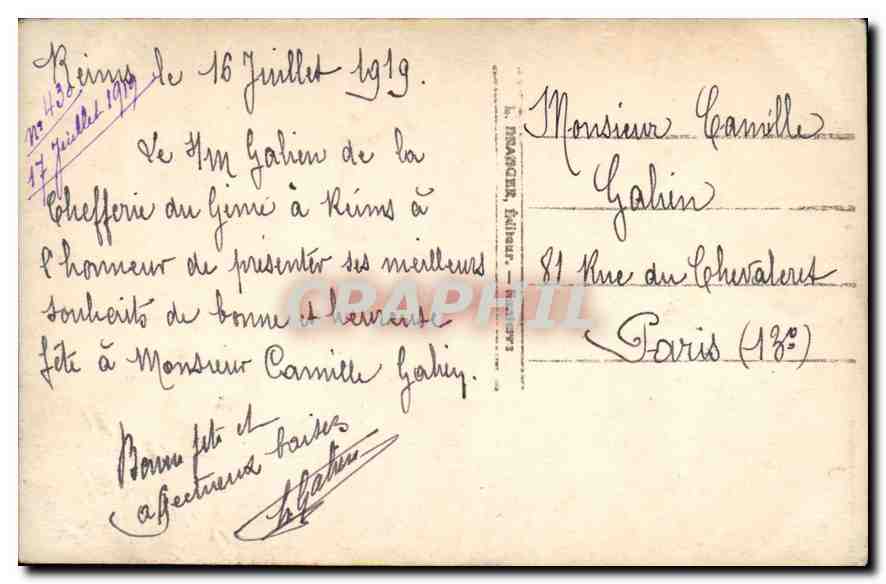 Reims le 16 Juillet 1919.
N° 43
17 Juillet 1919
Le Galien de la
Chefferie du Génie à Reims à
l'honneur de présenter ses meilleurs
souhaits de bonne et heureuse
fête à Monsieur Camille Galien.
Bonne fête et
affectueux baisers
Galien
Éditeur.
Monsieur Camille
Galien
81 Rue du Chevaleret
Paris (13e)
CRAPHIL